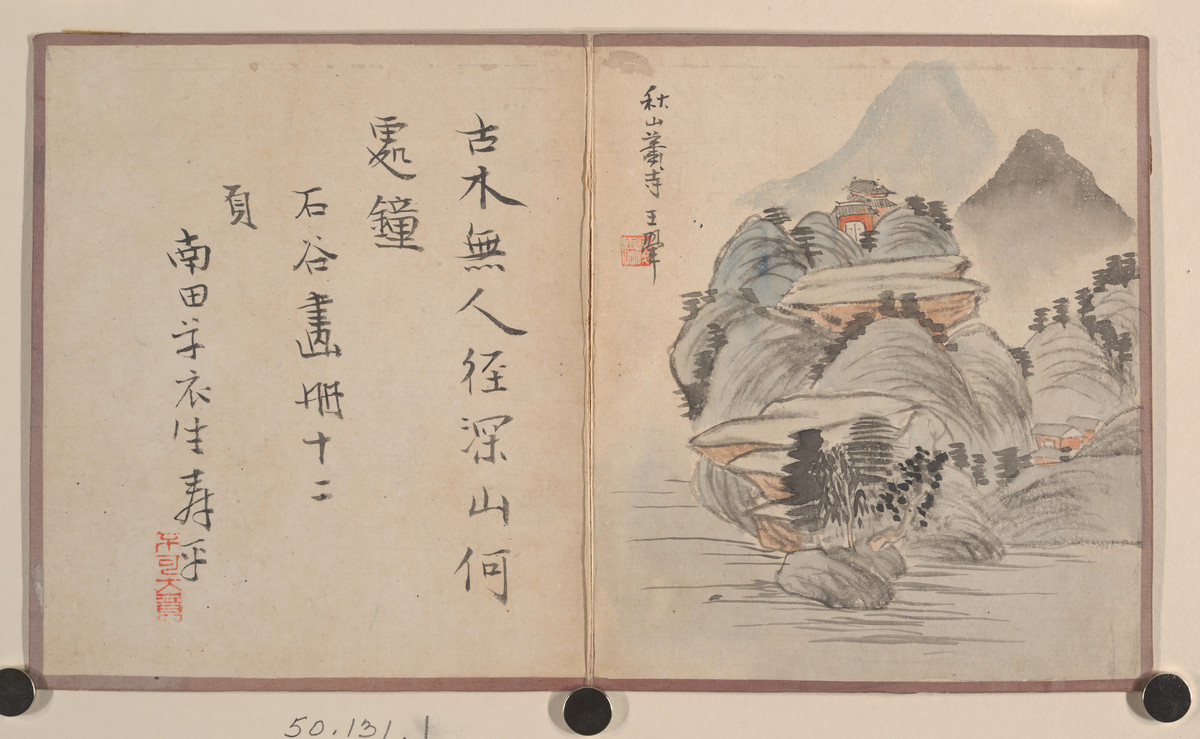 秋山蕭寺 王翬
古木無人径深山何
處鐘
石谷畫冊十二
頁
南田草衣生寿平
50.131.1